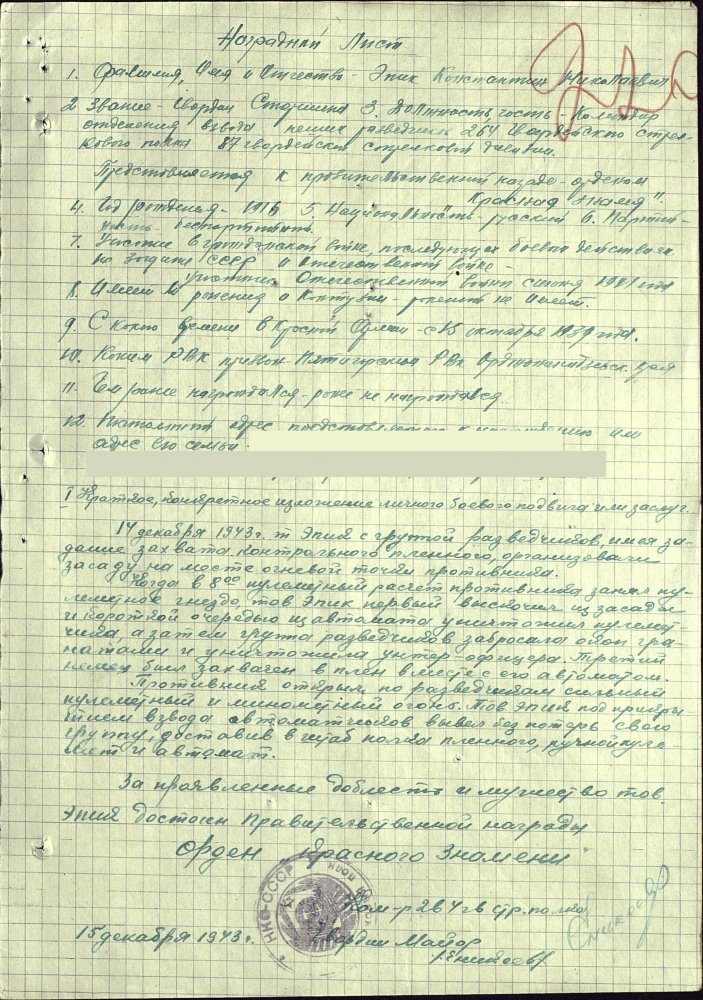 Наградной Лист
1. Фамилия, Имя и Отчество - Эпик Константин Николаевич
2 Звание - Гвардии Старшина 3. Должность, часть - Командир
отделения взвода пеших разведчиков 264 гвардейского стрел-
кового полка 87 гвардейской стрелковой дивизии.
Представляется к правительственной награде - орденом
"Красная Знамя".
4. Год рождения - 1916 5. Национальность - русский 6. Партий-
ность - беспартийный.
7. Участие в гражданской войне, последующих боевых действиях
по защите СССР и отечественной войне -
участник Отечественной войны с 1941 года
8. Имеет ли ранения и контузии - ранений не имеет.
9. С какого времени в Красной Армии - с 15 октября 1939 года.
10. Каким РВК призван - Пятигорским РВК Орджоникидзевск. края
11. Чем ранее награждался - ранее не награждался
12. Постоянный адрес представляемого к награждению или
адрес его семьи
I Краткое, конкретное изложение личного боевого подвига или заслуг.
14 декабря 1943 г. т. Эпик с группой разведчиков, имея за-
дание захвата контрольного пленного, организовали
засаду на месте огневой точки противника.
Когда в 8⁰⁰ пулеметный расчет противника занял пу-
леметное гнездо тов Эпик первый выскочил из засады
и короткой очередью из автомата уничтожил пулемет-
чика, а затем группа разведчиков забросала окоп гра-
натами и уничтожила унтер-офицера. Третий
немец был захвачен в плен вместе с его автоматом.
Противник открыл по разведчикам сильный
пулеметный и минометный огонь. Тов Эпик под прикры-
тием взвода автоматчиков вывел без потерь свою
группу, доставив в штаб полка пленного, ручной пуле-
мет и автомат.
За проявленные доблесть и мужество тов.
Эпик достоин Правительственной награды
Орден "Красного Знамени"
Ком-р 264 гв стр. полка
15 декабря 1943 г. Гвардии Майор